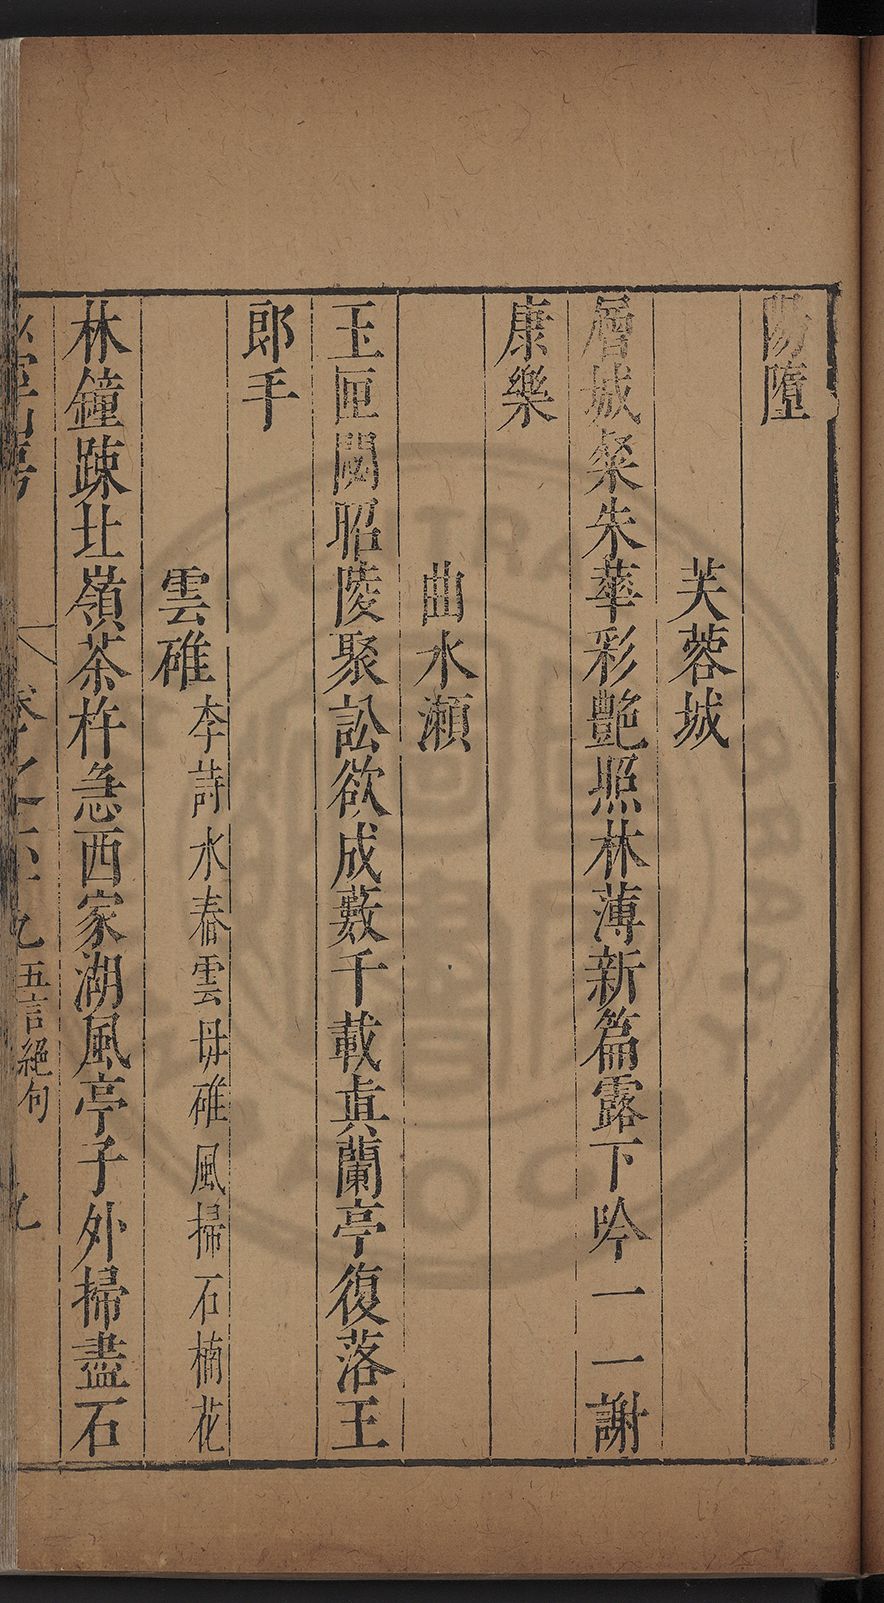 陽墮
芙蓉城
層城粲朱華彩艶照林薄新篇露下吟一一謝
康樂
曲水瀬
玉匣閟昭陵聚訟欲成藪千載真蘭亭復落王
郎手
雲碓李詩水舂雲母碓風掃石楠花
林鐘踈北嶺茶杵急西家湖風亭子外掃盡石
卷之 九五言絕句 九